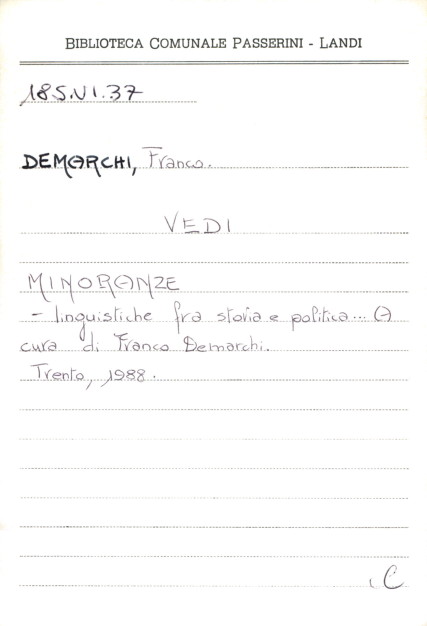 BIBLIOTECA COMUNALE PASSERINI - LANDI
185.VI.37
DEMARCHI, Franco.
VEDI
MINORANZE
- linguistiche fra storia e politica... A
cura di Franco Demarchi.
Trento, 1988.
C